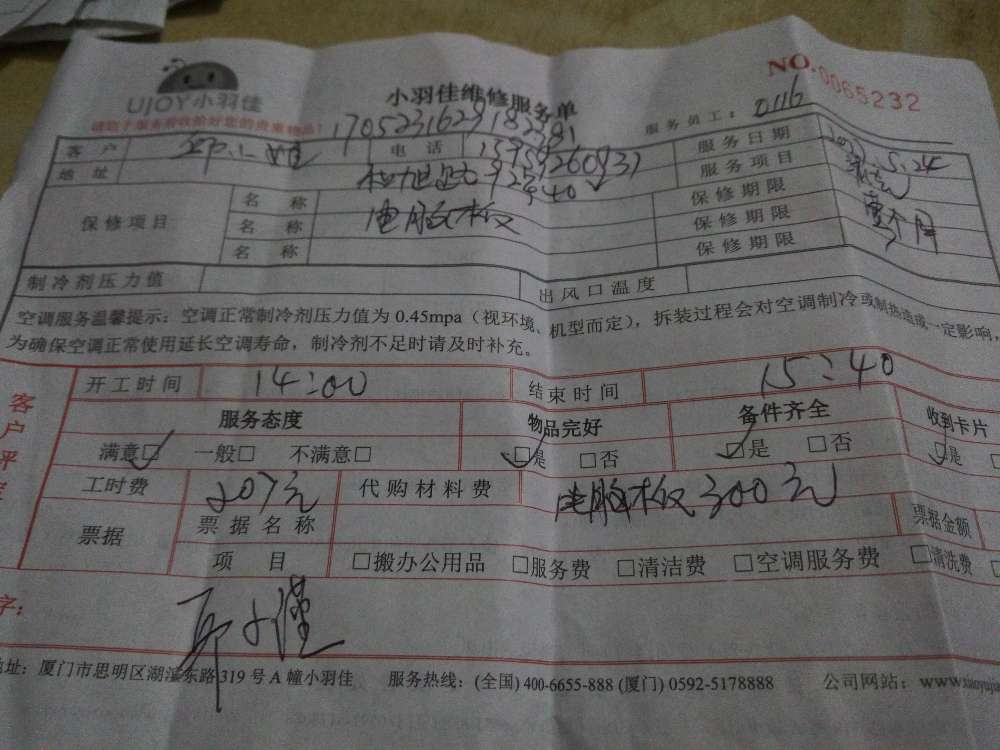 UJOY小羽佳
小羽佳维修服务单
NO.0065232
服务员工：0116
客户 电话 15959260937 服务日期 5.24
地址 服务项目
保修项目 名称 保修期限
名称 电脑板 保修期限
名称 保修期限
制冷剂压力值 出风口温度
空调服务温馨提示：空调正常制冷剂压力值为 0.45mpa（视环境、机型而定），拆装过程会对空调制冷或制热造成一定影响，
为确保空调正常使用延长空调寿命，制冷剂不足时请及时补充。
开工时间 14:00 结束时间 15:40
客户评
服务态度 物品完好 备件齐全 收到卡片
满意□ 一般□ 不满意□ □是 □否 □是 □否 □是
工时费 207元 代购材料费 电脑板300元
票据 票据名称 票据金额
项目 □搬办公用品 □服务费 □清洁费 □空调服务费 □清洗费
字：
地址：厦门市思明区湖滨东路 319 号 A 幢小羽佳 服务热线：(全国) 400-6655-888 (厦门) 0592-5178888 公司网站：www.xiaoyuj